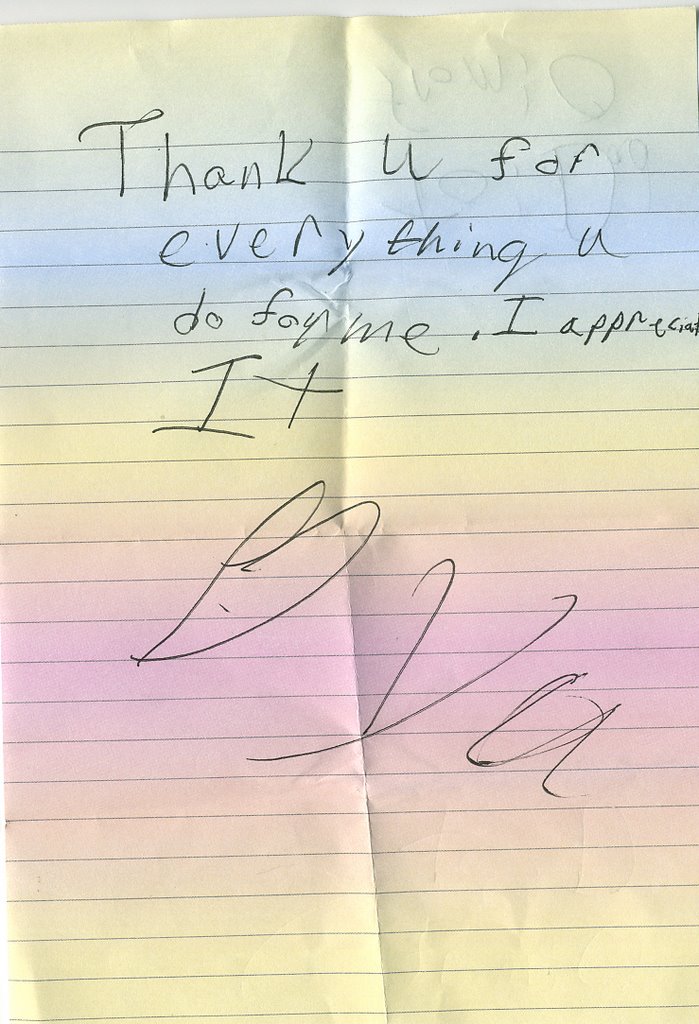 Thank u for
everything u
do for me. I appreciat
It